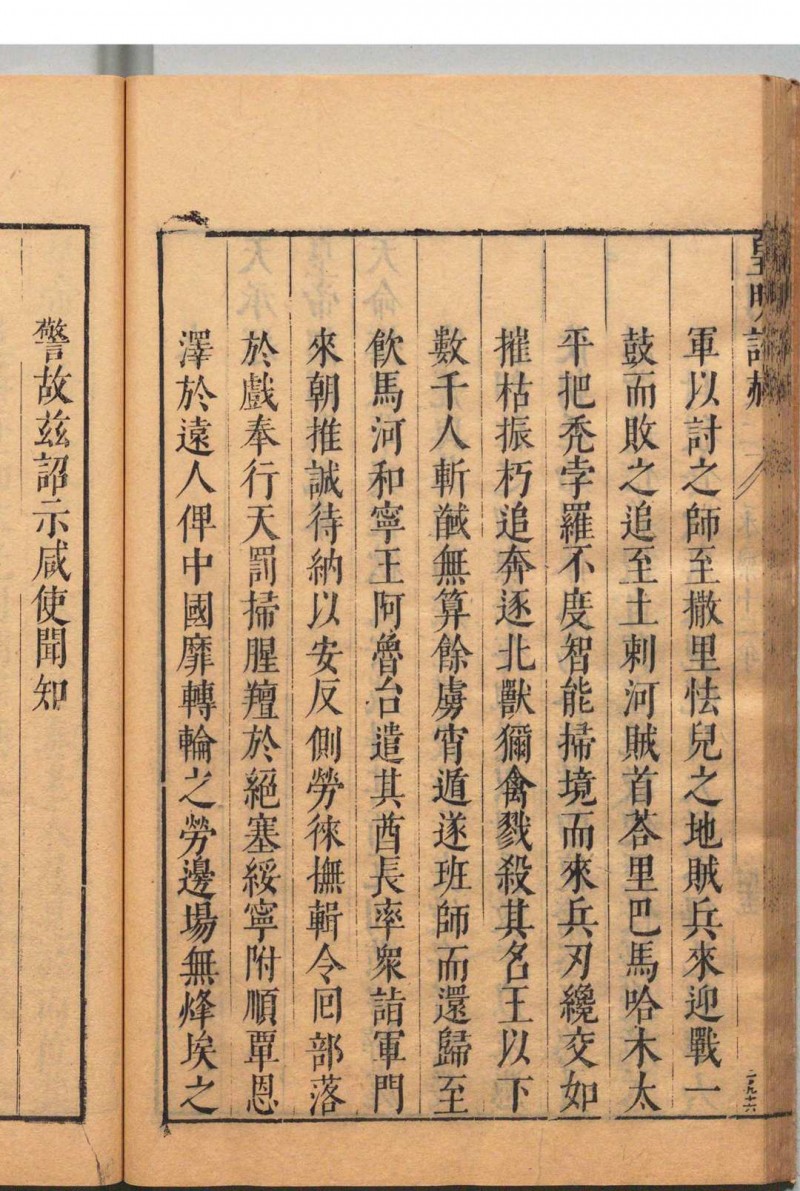 皇明詔赦
軍以討之師至撒里怯兒之地賊兵來迎戰一
鼓而敗之追至土剌河賊首荅里巴馬哈木太
平把禿孛羅不度智能掃境而來兵刃纔交如
摧枯振朽追奔逐北獸獮禽戮殺其名王以下
數千人斬馘無算餘虜宵遁遂班師而還歸至
飲馬河和寧王阿魯台遣其酋長率衆詣軍門
來朝推誠待納以安反側勞徠撫輯令回部落
於戲奉行天罰掃腥羶於絕塞綏寧附順覃恩
澤於遠人俾中國靡轉輪之勞邊場無烽埃之
警故茲詔示咸使聞知